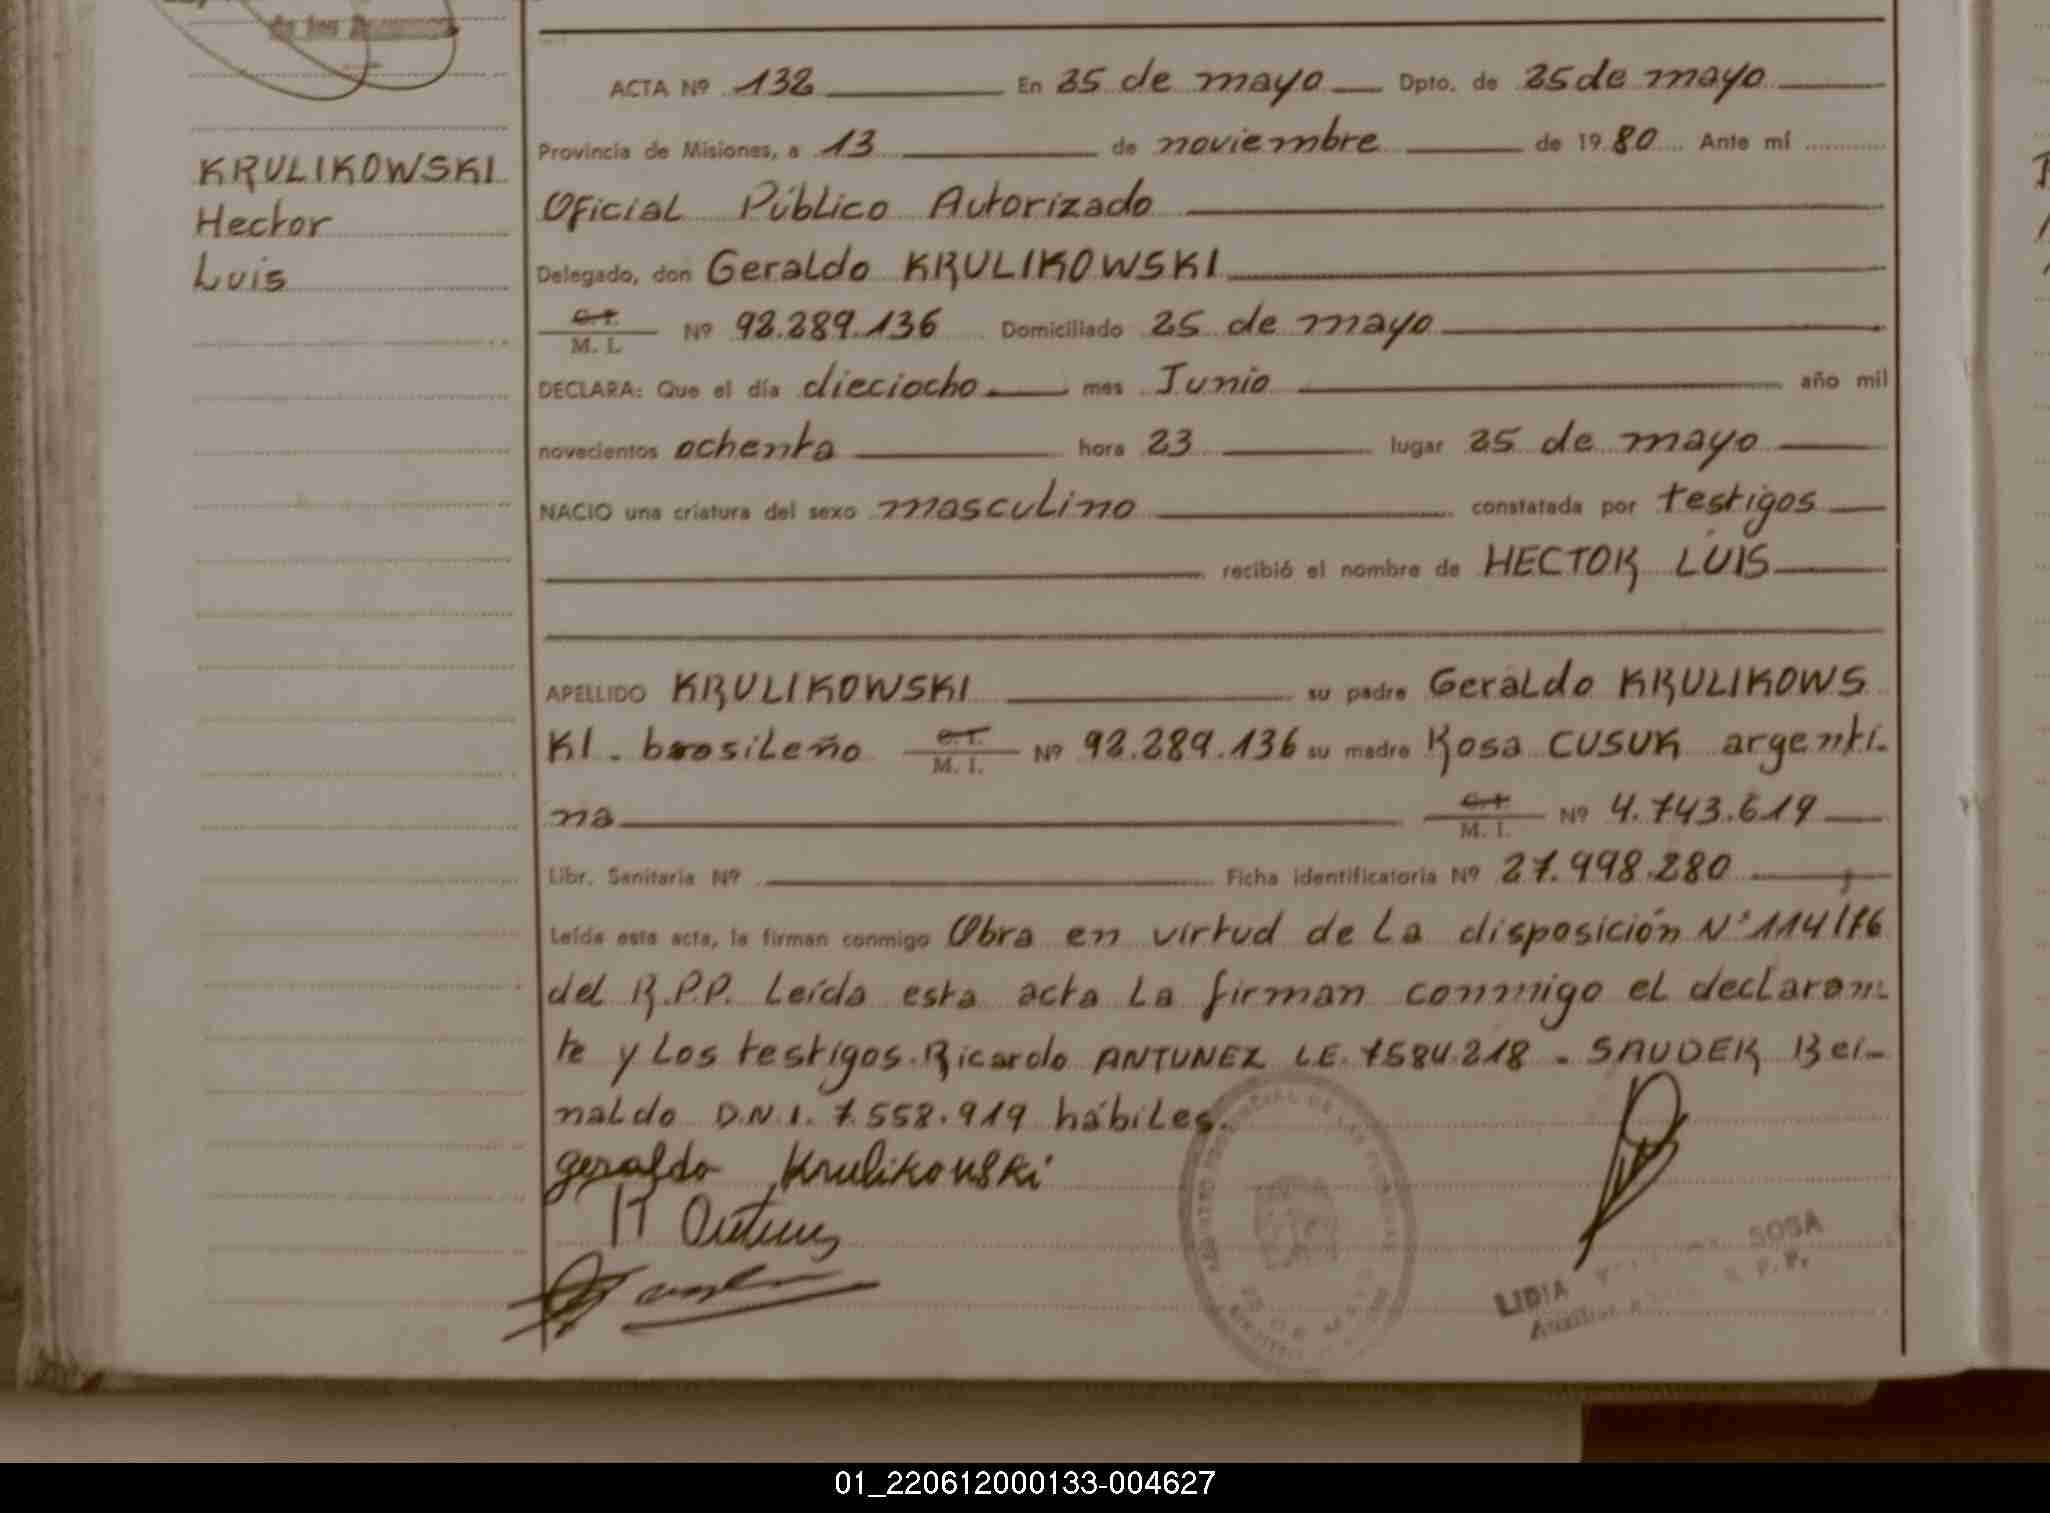 de los
ACTA Nº 132 En 25 de mayo Dpto. de 25 de mayo
Provincia de Misiones, a 13 de noviembre de 1980 Ante mí
KRULIKOWSKI
Hector
Luis
Oficial Público Autorizado
Delegado, don Geraldo KRULIKOWSKI
C. I. M. I. Nº 92.289.136 Domiciliado 25 de mayo
DECLARA: Que el día dieciocho mes Junio año mil
novecientos ochenta hora 23 lugar 25 de mayo
NACIO una criatura del sexo masculino constatada por testigos
recibió el nombre de HECTOR LUIS
APELLIDO KRULIKOWSKI su padre Geraldo KRULIKOWS
KI. brasileño C. I. M. I. Nº 92.289.136 su madre Rosa CUSUK argenti-
na C. I. M. I. Nº 4.743.619
Libr. Sanitaria Nº Ficha identificatoria Nº 27.998.280
Leída esta acta, la firman conmigo Obra en virtud de la disposición Nº 114/76
del R.P.P. Leída esta acta la firman conmigo el declaran-
te y los testigos. Ricardo ANTUNEZ L.E. 7584.218 - SAUDER Rei-
naldo D.N.I. 7.558.919 hábiles.
geraldo Krulikowski
LIDIA SOSA
Auxiliar R. P. P.
25 DE MAYO
01_220612000133-004627